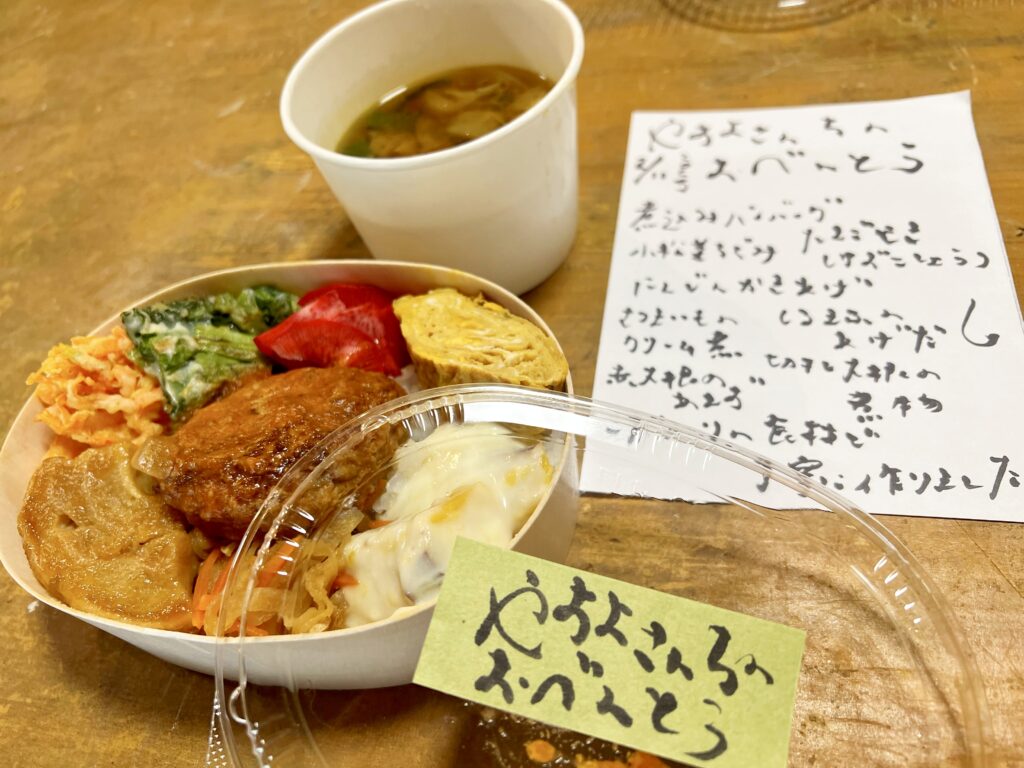 やすよさんちの
おべんとう
煮込みハンバーグ
小松菜ちぢみ たまごやき
しおこしょう
にんじんかきあげ
さつまいもの
クリーム煮 あげだし
赤大根の 切干大根の
煮物
の食材で
丁寧に作りました
やすよさんちの
おべんとう